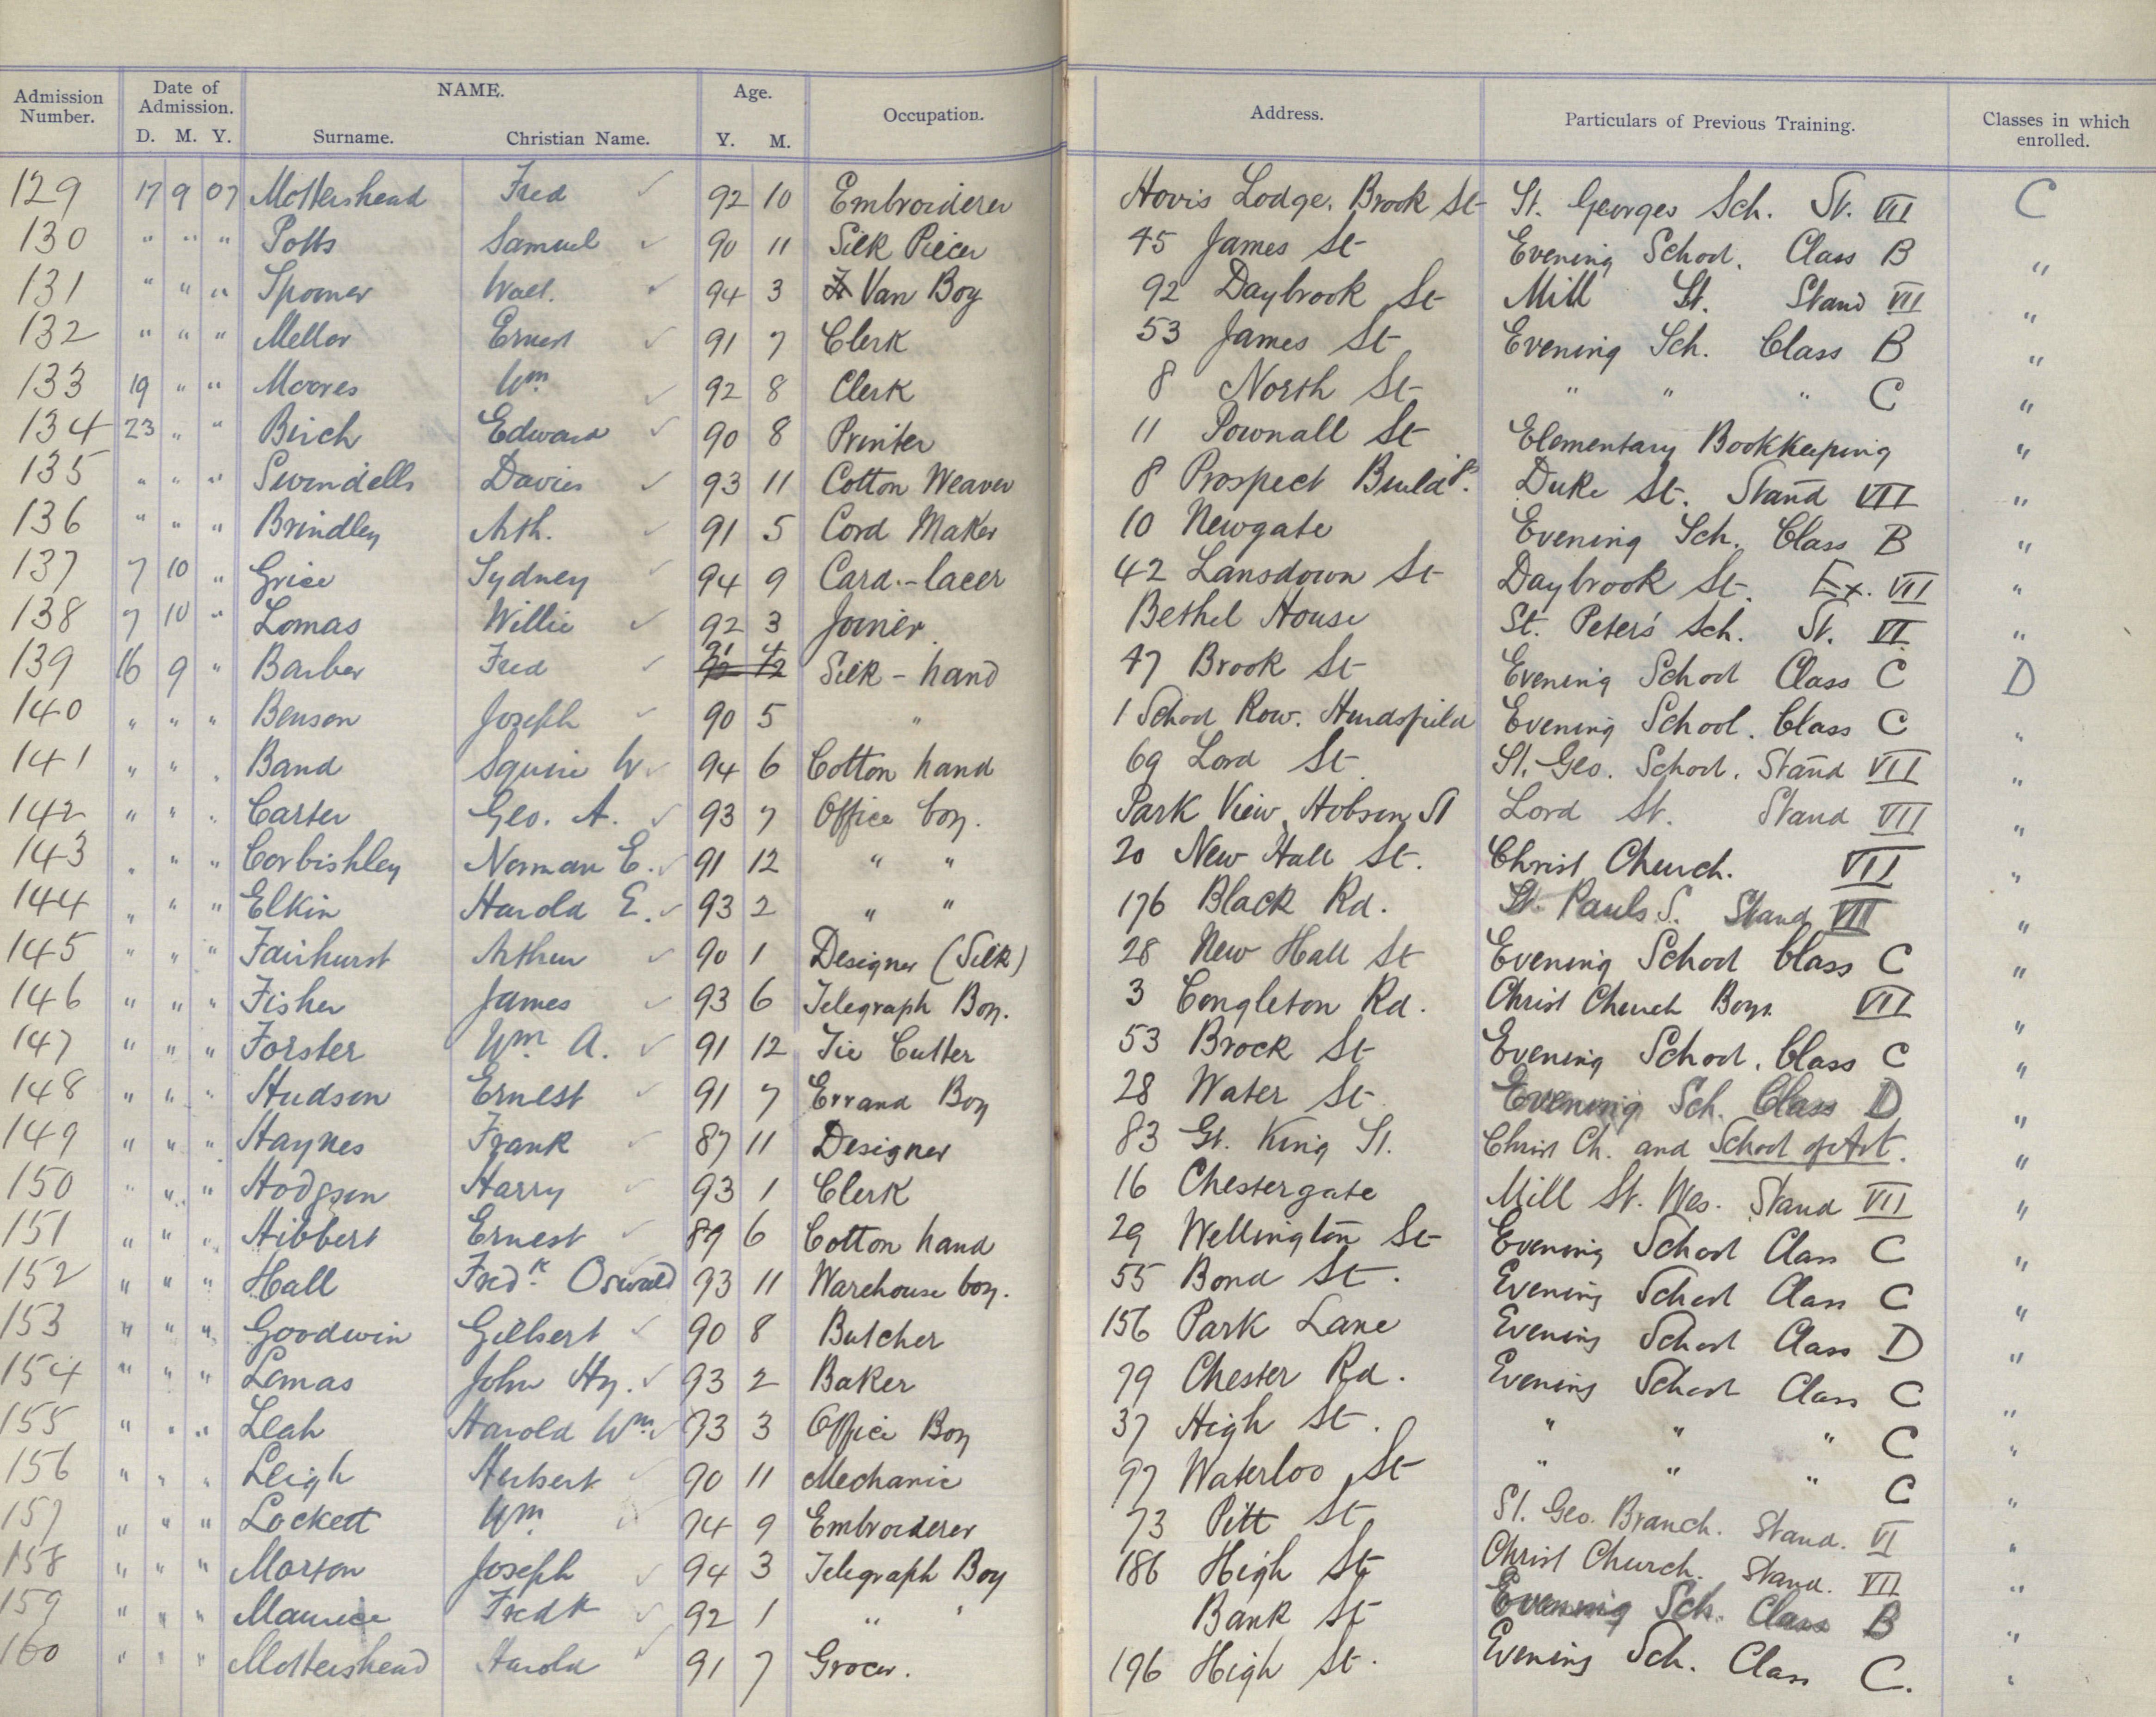 Admission Number. Date of Admission. NAME. Age. Occupation. Address. Particulars of Previous Training. Classes in which enrolled.
D. M. Y. Surname. Christian Name. Y. M.
129 17 9 07 Mottershead Fred ✓ 92 10 Embroiderer Hovis Lodge. Brook St St. Georges Sch. St. VII C
130 " " " Potts Samuel ✓ 90 11 Silk Piecer 45 James St Evening School. Class B "
131 " " " Spooner Walt. ✓ 94 3 Van Boy 92 Daybrook St Mill St. Stand VII "
132 " " " Mellor Ernest ✓ 91 7 Clerk 53 James St Evening Sch. Class B "
133 19 " " Moores Wm ✓ 92 8 Clerk 8 North St " " " C "
134 23 " " Birch Edward ✓ 90 8 Printer 11 Pownall St Elementary Bookkeeping "
135 " " " Swindells Davies ✓ 93 11 Cotton Weaver 8 Prospect Buildgs. Duke St. Stand VII "
136 " " " Brindley Arth. ✓ 91 5 Cord Maker 10 Newgate Evening Sch. Class B "
137 7 10 " Grice Sydney ✓ 94 9 Card.-lacer 42 Lansdown St Daybrook St. Ex. VII "
138 7 10 " Lomas Willie ✓ 92 3 Joiner. Bethel House St. Peter's Sch. St. VI "
139 16 9 " Barber Fred ✓ 91 4 Silk - hand 47 Brook St Evening School Class C D
140 " " " Benson Joseph ✓ 90 5 " 1 School Row. Hurdsfield Evening School. Class C "
141 " " " Band Squire W ✓ 94 6 Cotton hand 69 Lord St. St. Geo. School. Stand VII "
142 " " " Carter Geo. A. ✓ 93 7 Office boy. Park View, Hobson St Lord St. Stand VII "
143 " " " Corbishley Norman E. ✓ 91 12 " " 20 New Hall St. Christ Church. VII "
144 " " " Elkin Harold E. ✓ 93 2 " " 176 Black Rd. St. Pauls S. Stand VII "
145 " " " Fairhurst Arthur ✓ 90 1 Designer (Silk) 28 New Hall St Evening School Class C "
146 " " " Fisher James ✓ 93 6 Telegraph Boy. 3 Congleton Rd. Christ Church Boys. VII "
147 " " " Forster Wm A. ✓ 91 12 Tie Cutter 53 Brock St Evening School. Class C "
148 " " " Hudson Ernest ✓ 91 7 Errand Boy 28 Water St. Evening Sch. Class D "
149 " " " Haynes Frank ✓ 87 11 Designer 83 Gt. King St. Christ Ch. and School of Art. "
150 " " " Hodgson Harry ✓ 93 1 Clerk 16 Chestergate Mill St. Wes. Stand VII "
151 " " " Hibbert Ernest ✓ 89 6 Cotton hand 29 Wellington St Evening School Class C "
152 " " " Hall Fredk. Oswald 93 11 Warehouse boy. 55 Bond St. Evening School Class C "
153 " " " Goodwin Gilbert ✓ 90 8 Butcher 156 Park Lane Evening School Class D "
154 " " " Lomas John Hy. ✓ 93 2 Baker 79 Chester Rd. Evening School Class C "
155 " " " Leah Harold Wm ✓ 93 3 Office Boy 37 High St. " " " C "
156 " " " Leigh Herbert ✓ 90 11 Mechanic 97 Waterloo St " " " C "
157 " " " Lockett Wm ✓ 94 9 Embroiderer 73 Pitt St. St. Geo. Branch. Stand. VI "
158 " " " Morton Joseph ✓ 94 3 Telegraph Boy 186 High St Christ Church. Stand. VII "
159 " " " Maurice Fredk ✓ 92 1 " " Bank St Evening Sch. Class B "
160 " " " Mottershead Harold ✓ 91 7 Grocer. 196 High St. Evening Sch. Class C. "